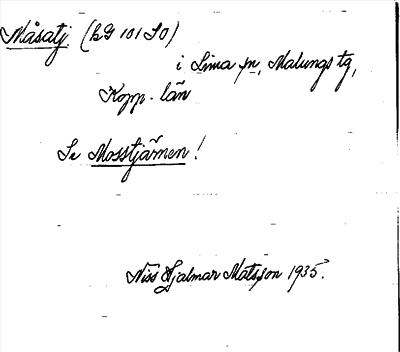 Måsatj. (bG 101 SO)
i Lima sn, Malungs tg,
Kopp. län
Se Mosstjärnen!
Niss Hjalmar Matsson 1935.